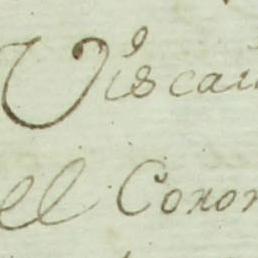 Viscai
el Coron